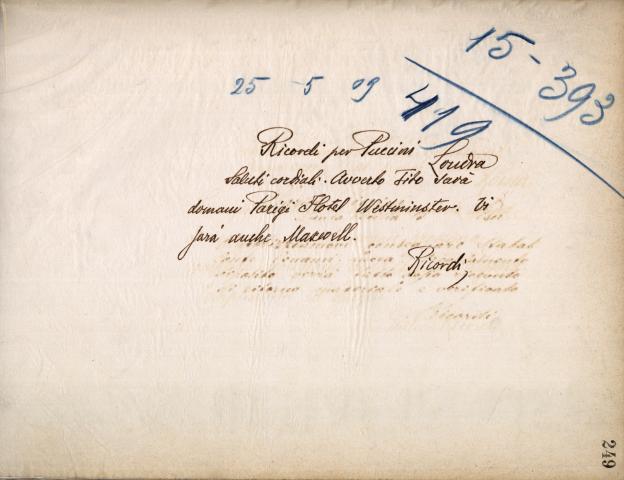 15-393
25 5 09 419
Ricordi per Puccini Londra
Saluti cordiali. Avverto Tito sarà
domani Parigi Hotel Westminster. Vi
sarà anche Maxwell.
Ricordi
Ricordi
249